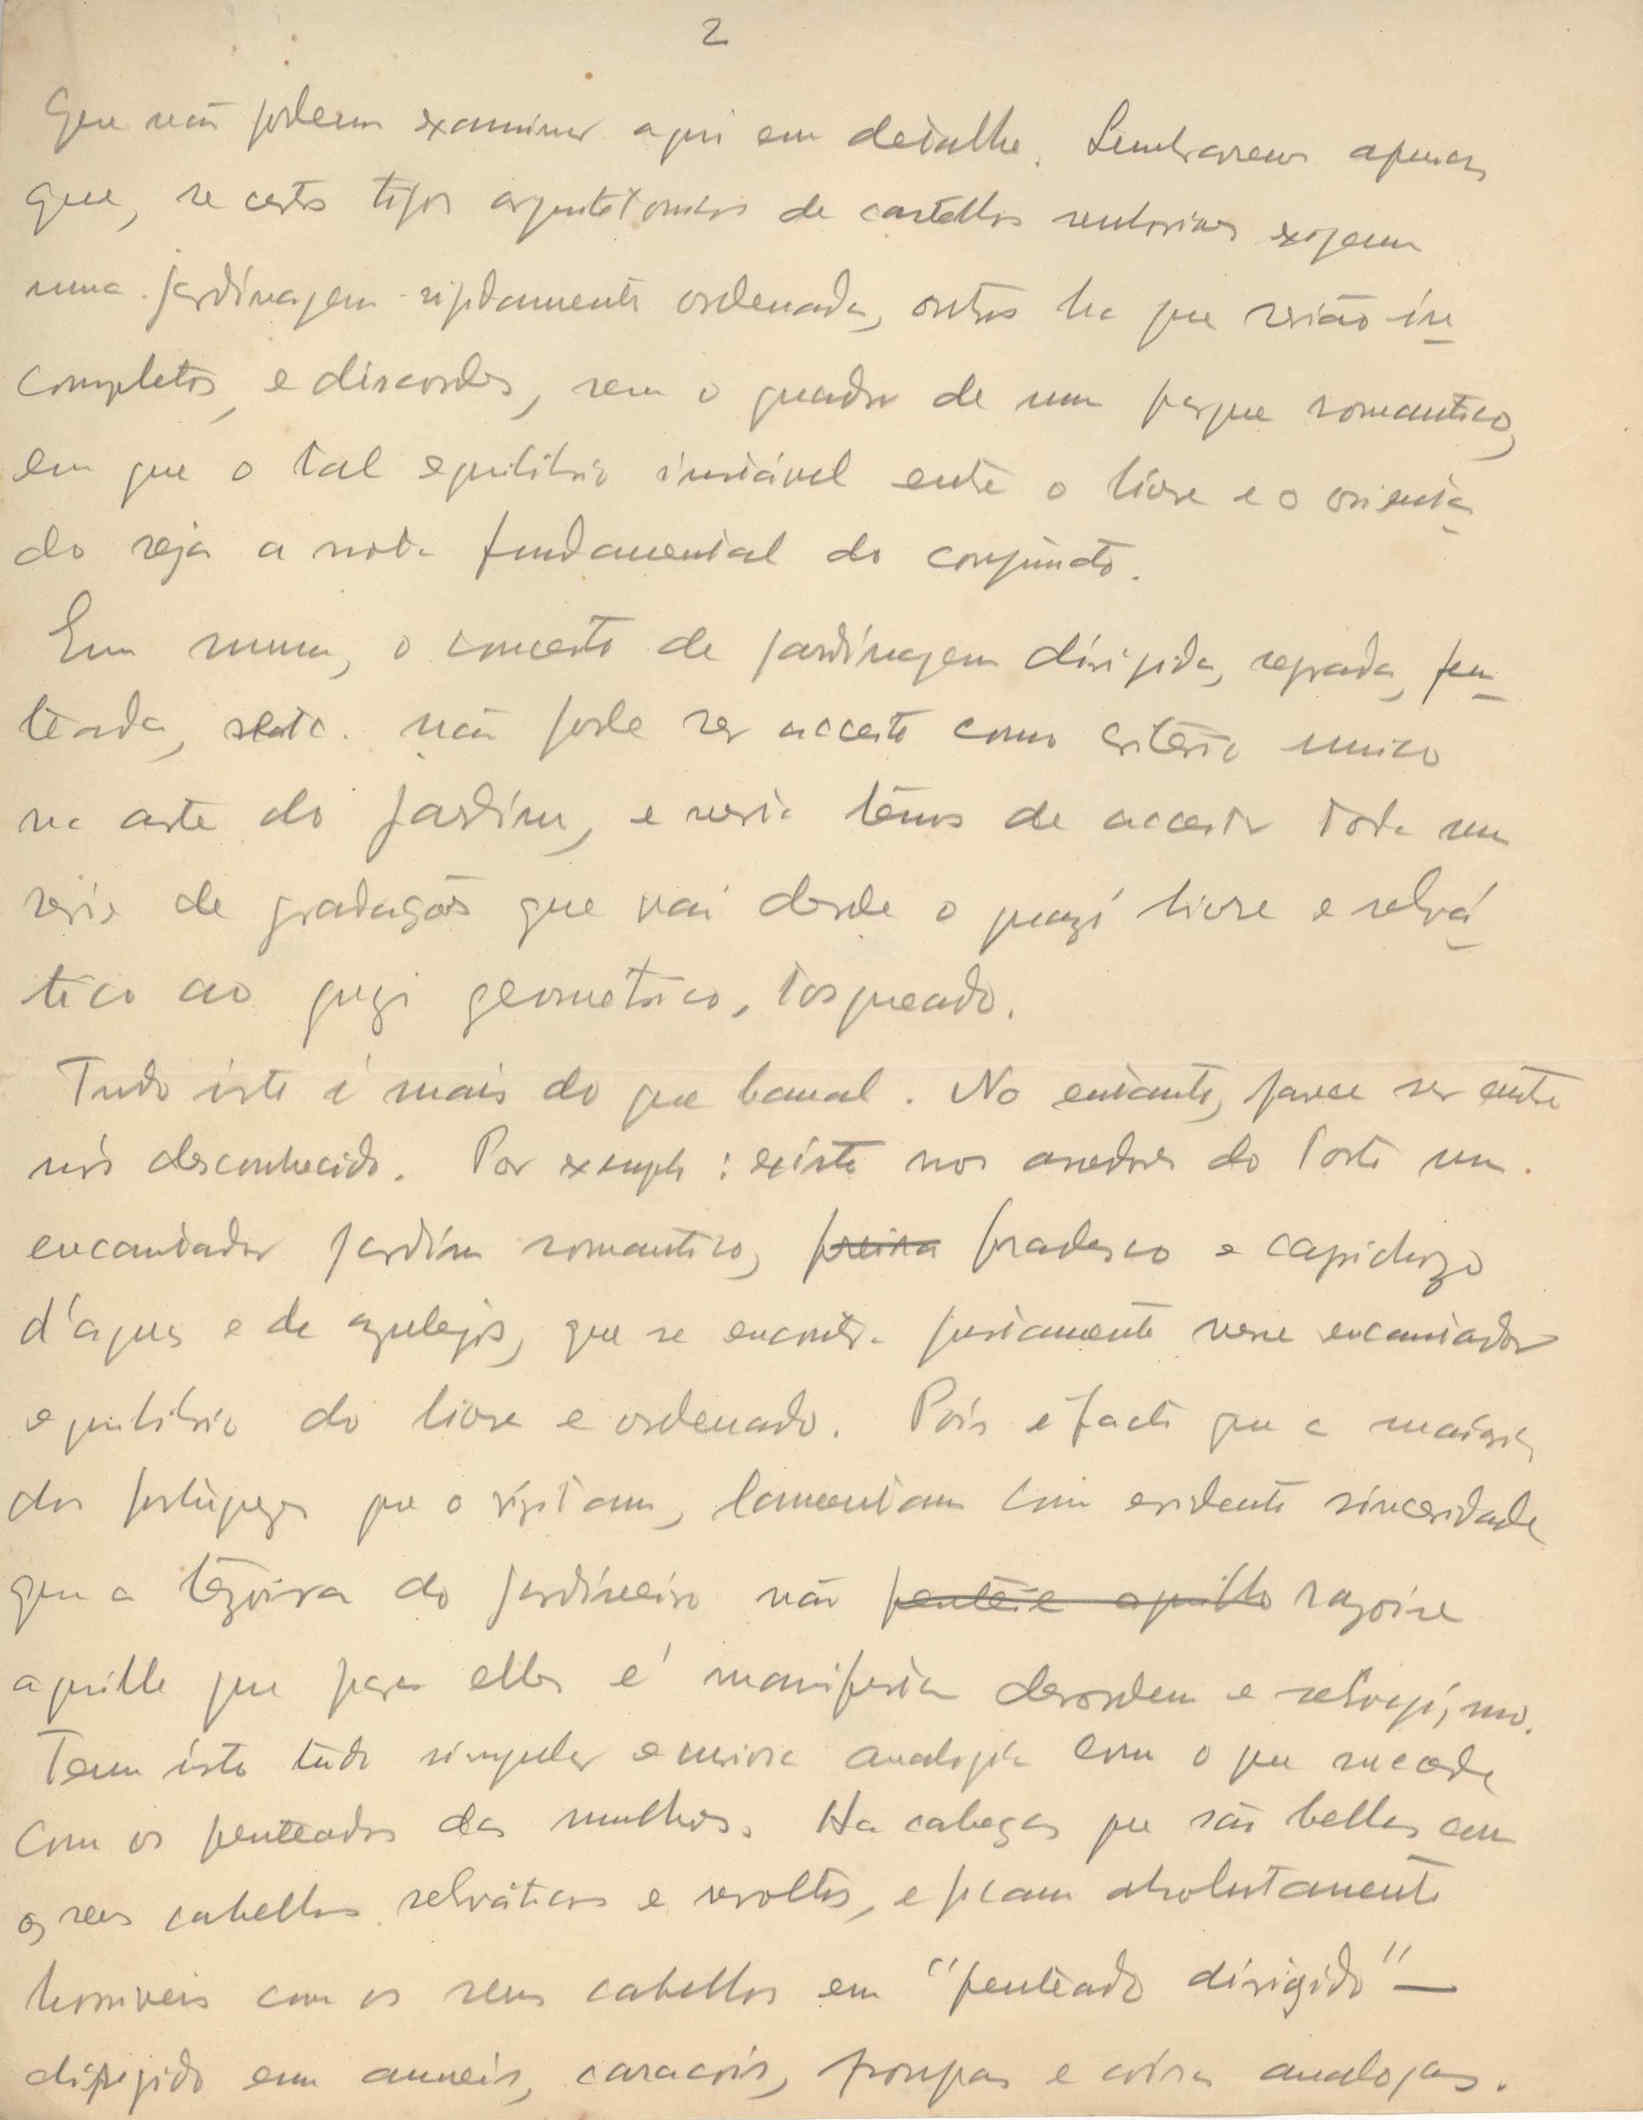 2
que não podem examinar aqui em detalhe. Lembraremos apenas
que, se certos tipos arquitétonicos de castellos senhoriaes exigem
uma jardinagem rigidamente ordenada, outros ha que serião in
completos, e discordes, sem o quadro de um parque romantico,
em que o tal equilibrio instável entre o livre e o orienta
do seja a nota fundamental do conjuncto.
Em suma, o conceito de jardinagem dirigida, regrada, pen
teada, etc. não pode ser acceite como critério unico
na arte do jardim, e nesta temos de acceitar toda uma
serie de gradações que vai desde o quazi livre e selvá
tico ao quazi geometrico, tosqueado.
Tudo isto é mais do que banal. No entanto, parece ser entre
nós desconhecido. Por exemplo: existe nos arredores do Porto um
encantador jardim romantico, fradesco e caprichozo
d'aguas e de azulejos, que se encontra justamente nesse encantador
equilibrio do livre e ordenado. Pois é facto que a maioria
dos portuguezes que o vizitam, lamentam com evidente sinceridade
que a tezoira do jardineiro não razoire
aquillo que para elles é manifesta desordem e selvajismo.
Tem isto tudo singular e curiosa analogia com o que sucede
com os penteados das mulheres. Ha cabeças que são bellas com
os seus cabellos selváticos e revoltos, e ficam absolutamente
horriveis com os seus cabellos em "penteado dirigido" —
dirigido em anneis, caracois, poupas e coisas analogas.